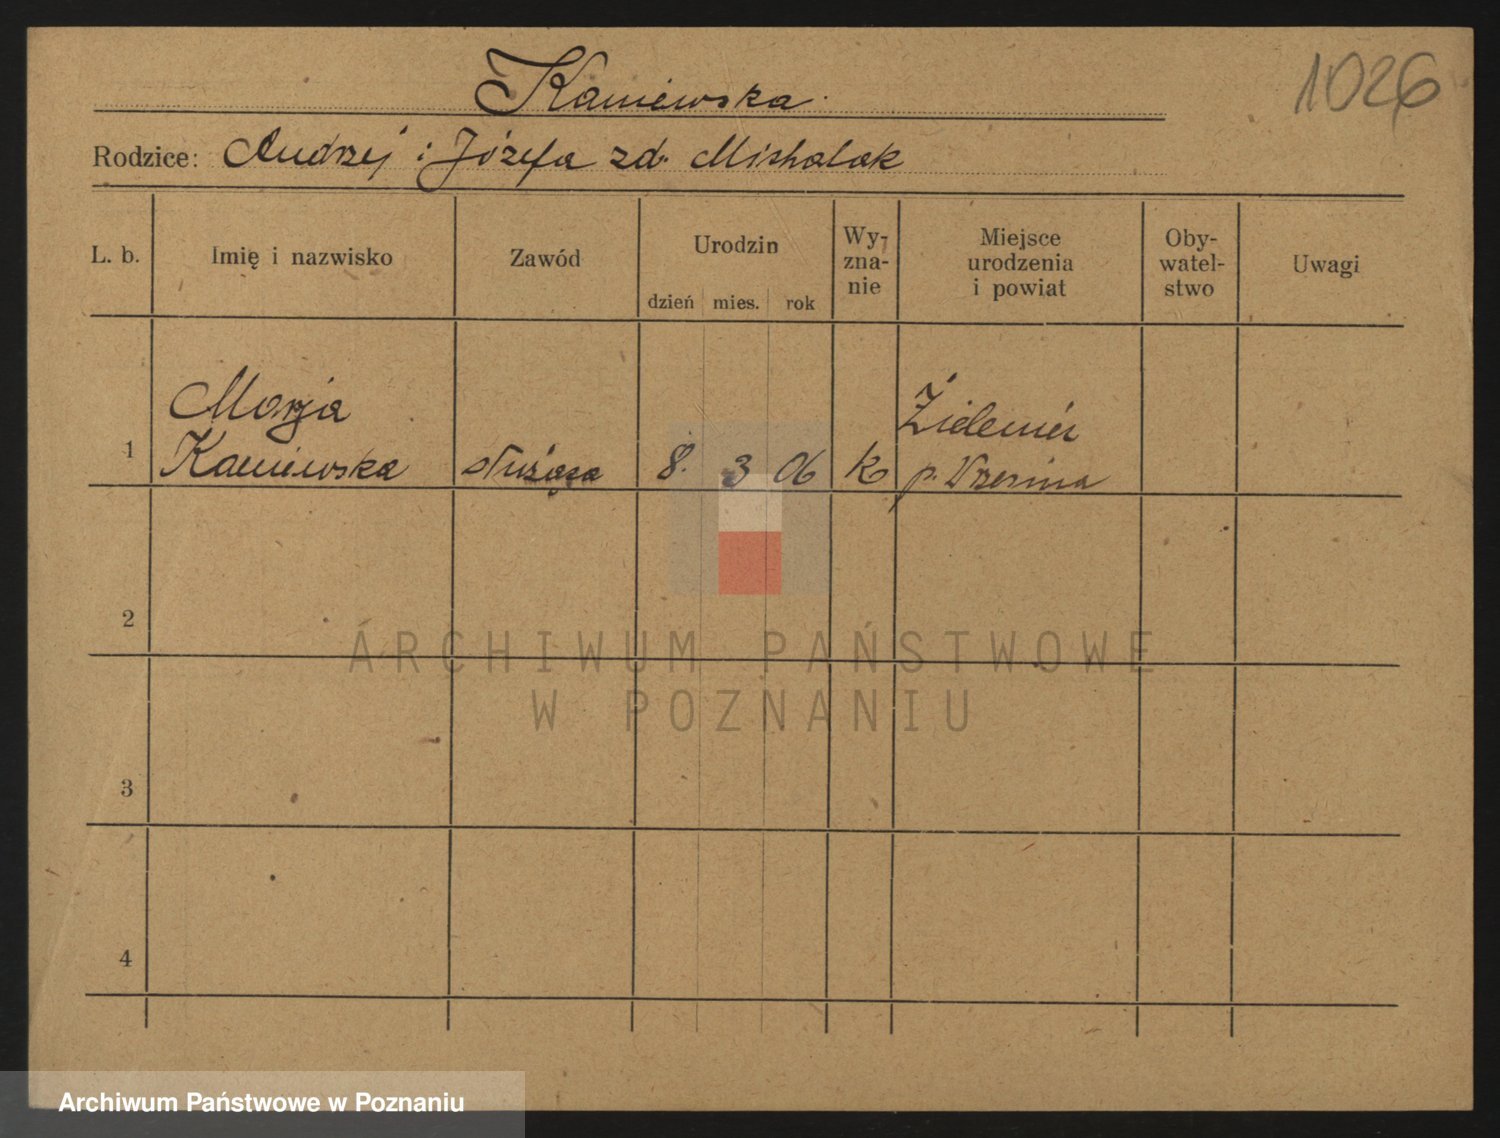 Kaniewska
1026
Rodzice: Andrzej i Józefa zd. Michalak
L. b.
Imię i nazwisko
Zawód
Urodzin
dzień mies. rok
Wy-
zna-
nie
Miejsce
urodzenia
i powiat
Oby-
watel-
stwo
Uwagi
1
Marja
Kaniewska
służąca
8. 3 06
k
p. Września
2
3
4
ARCHIWUM PAŃSTWOWE
W POZNANIU
Archiwum Państwowe w Poznaniu